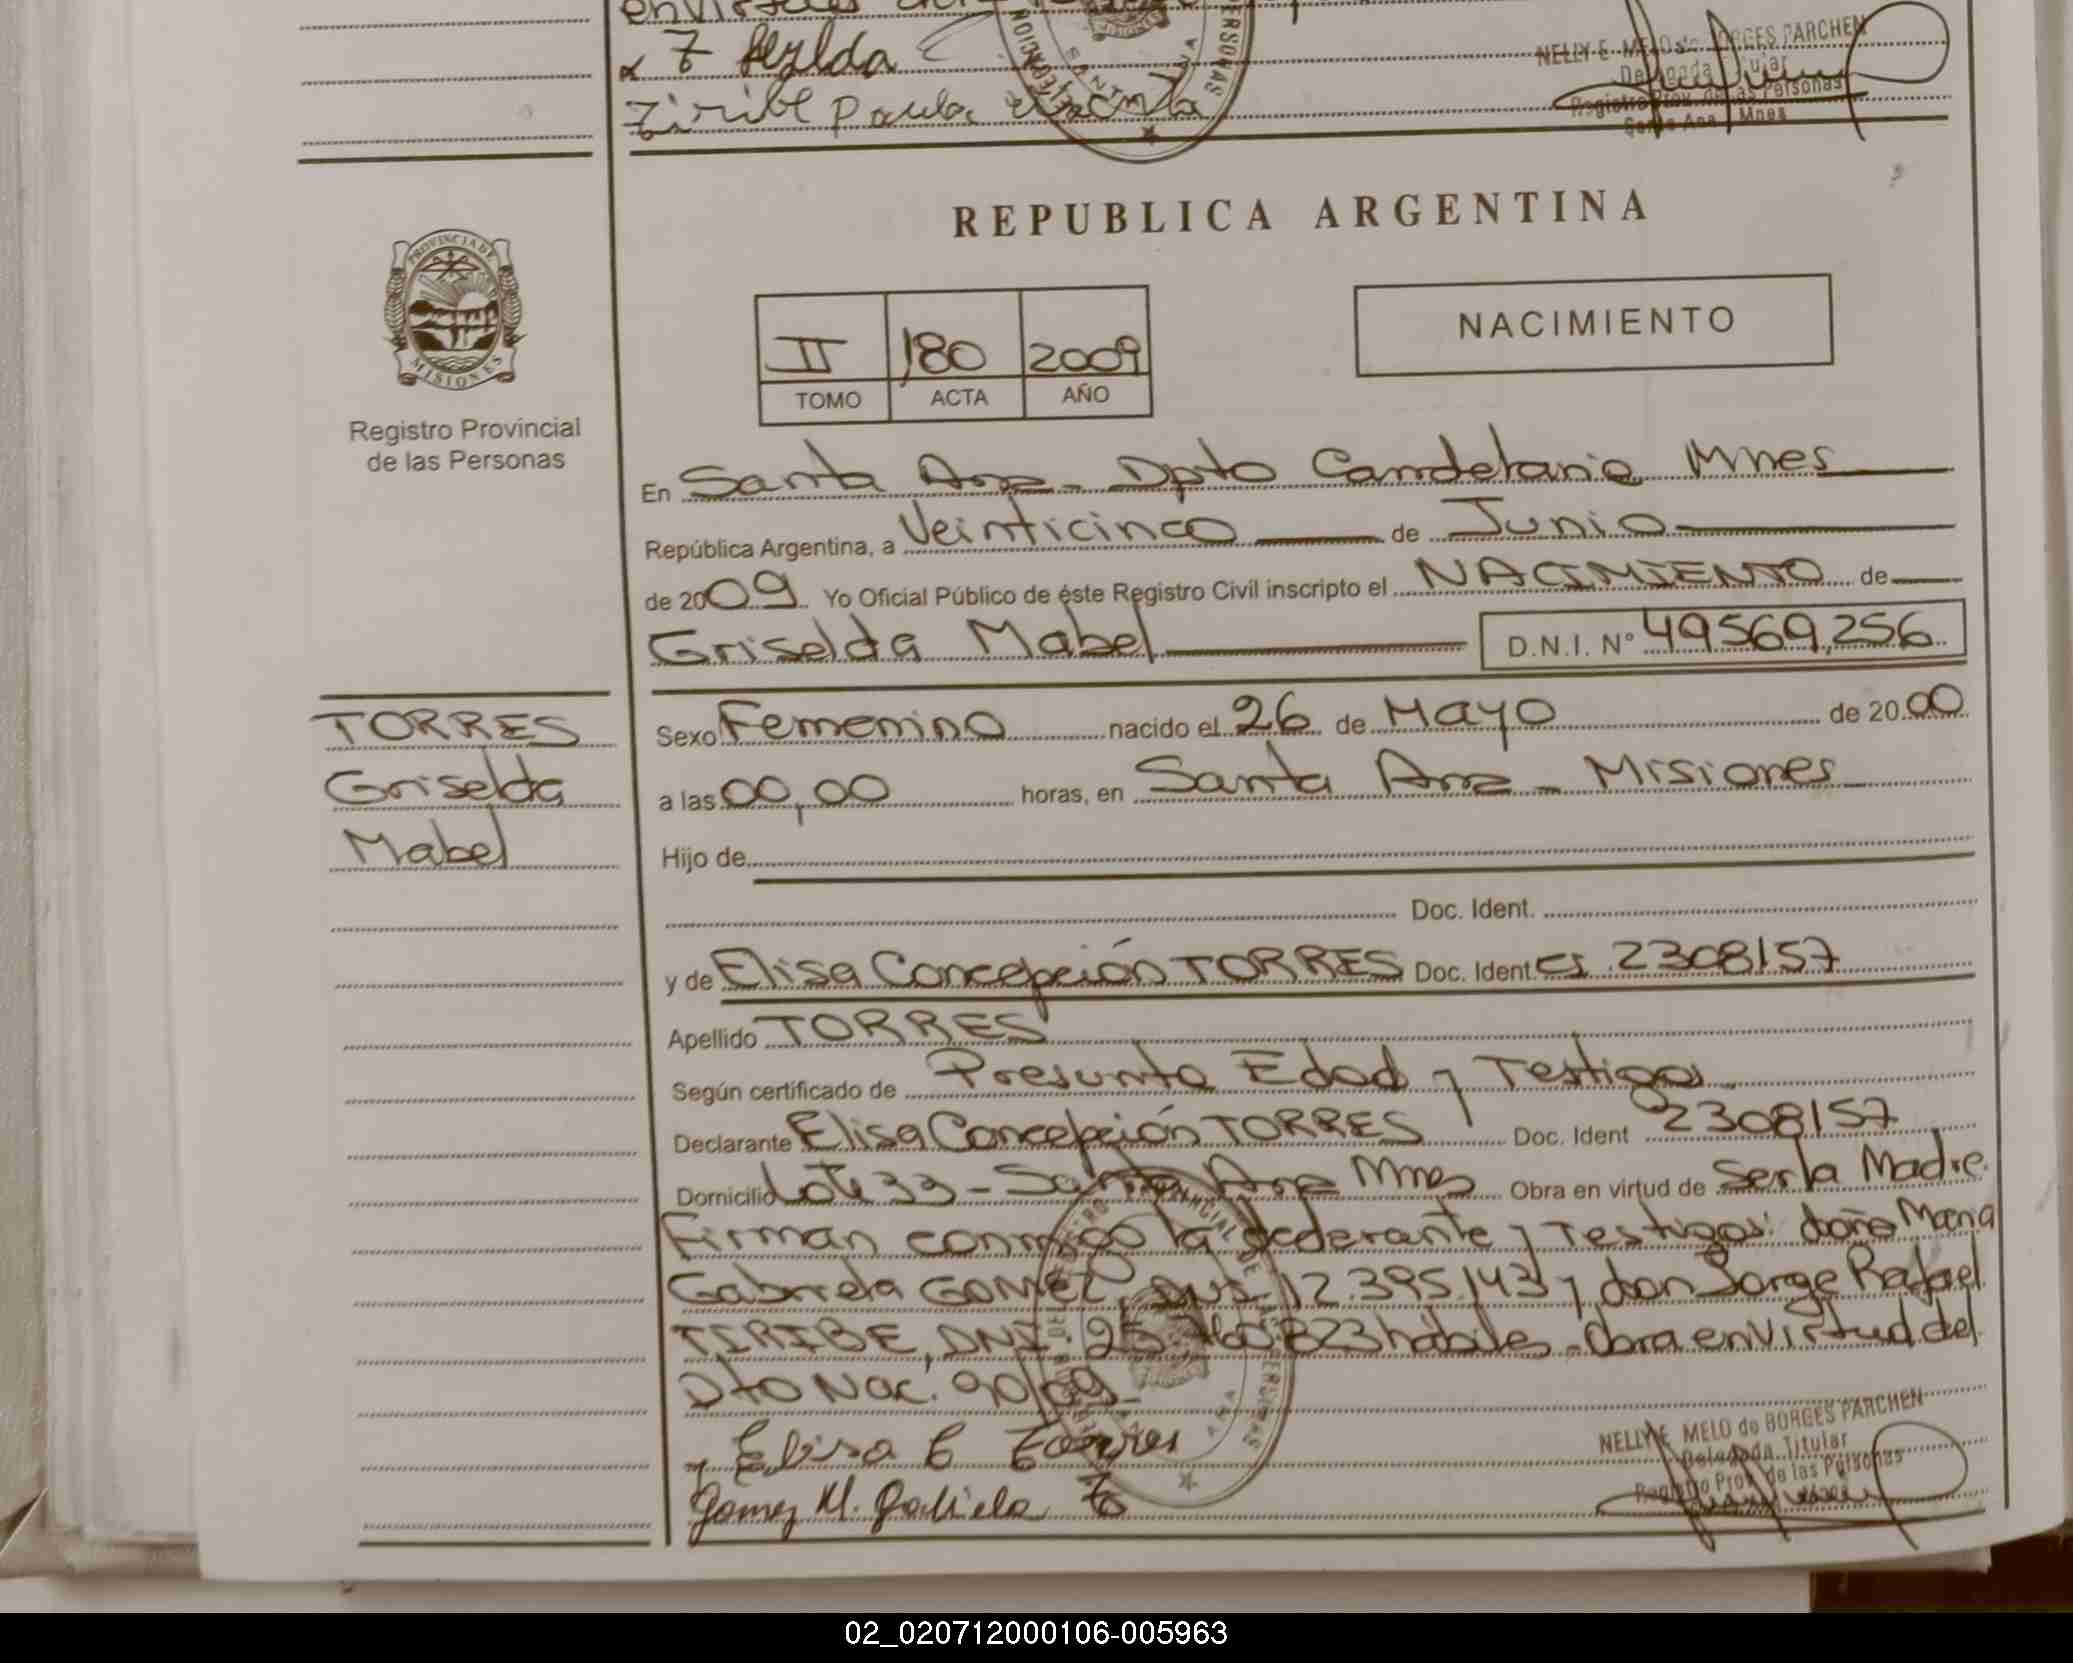 Tiribe Paula
NELLY E. MELO de BORGES PARCHEN
Delegada Titular
Registro Prov. de las Personas
Santa Ana Mnes
PROVINCIA DE
MISIONES
Registro Provincial
de las Personas
REPUBLICA ARGENTINA
II 180 2009
TOMO ACTA AÑO
NACIMIENTO
En Santa Ana - Dpto Candelaria Mnes
República Argentina, a Veinticinco de Junio
de 2009 Yo Oficial Público de éste Registro Civil inscripto el NACIMIENTO de
Griselda Mabel D.N.I. Nº 49569,256
TORRES
Griselda
Mabel
Sexo Femenino nacido el 26 de Mayo de 2000
a las 00,00 horas, en Santa Ana - Misiones
Hijo de
Doc. Ident.
y de Elisa Concepción TORRES Doc. Ident. CI 2308157
Apellido TORRES
Según certificado de Presunta Edad y Testigos
Declarante Elisa Concepción TORRES Doc. Ident 2308157
Domicilio Lote 33 - Santa Ana Mnes Obra en virtud de Ser la Madre.
Firman conmigo la declarante y Testigos: doña Maria
Gabriela GOMEZ, DNI 12.395.143 y don Jorge Rafael
TIRIBE, DNI 25 823 habiles - Obra en virtud del
Dto Nac. 90/09 -
Elisa C Torres
Gomez M. Gabriela
NELLY E. MELO de BORGES PARCHEN
Delegada Titular
Registro Prov. de las Personas
02_020712000106-005963